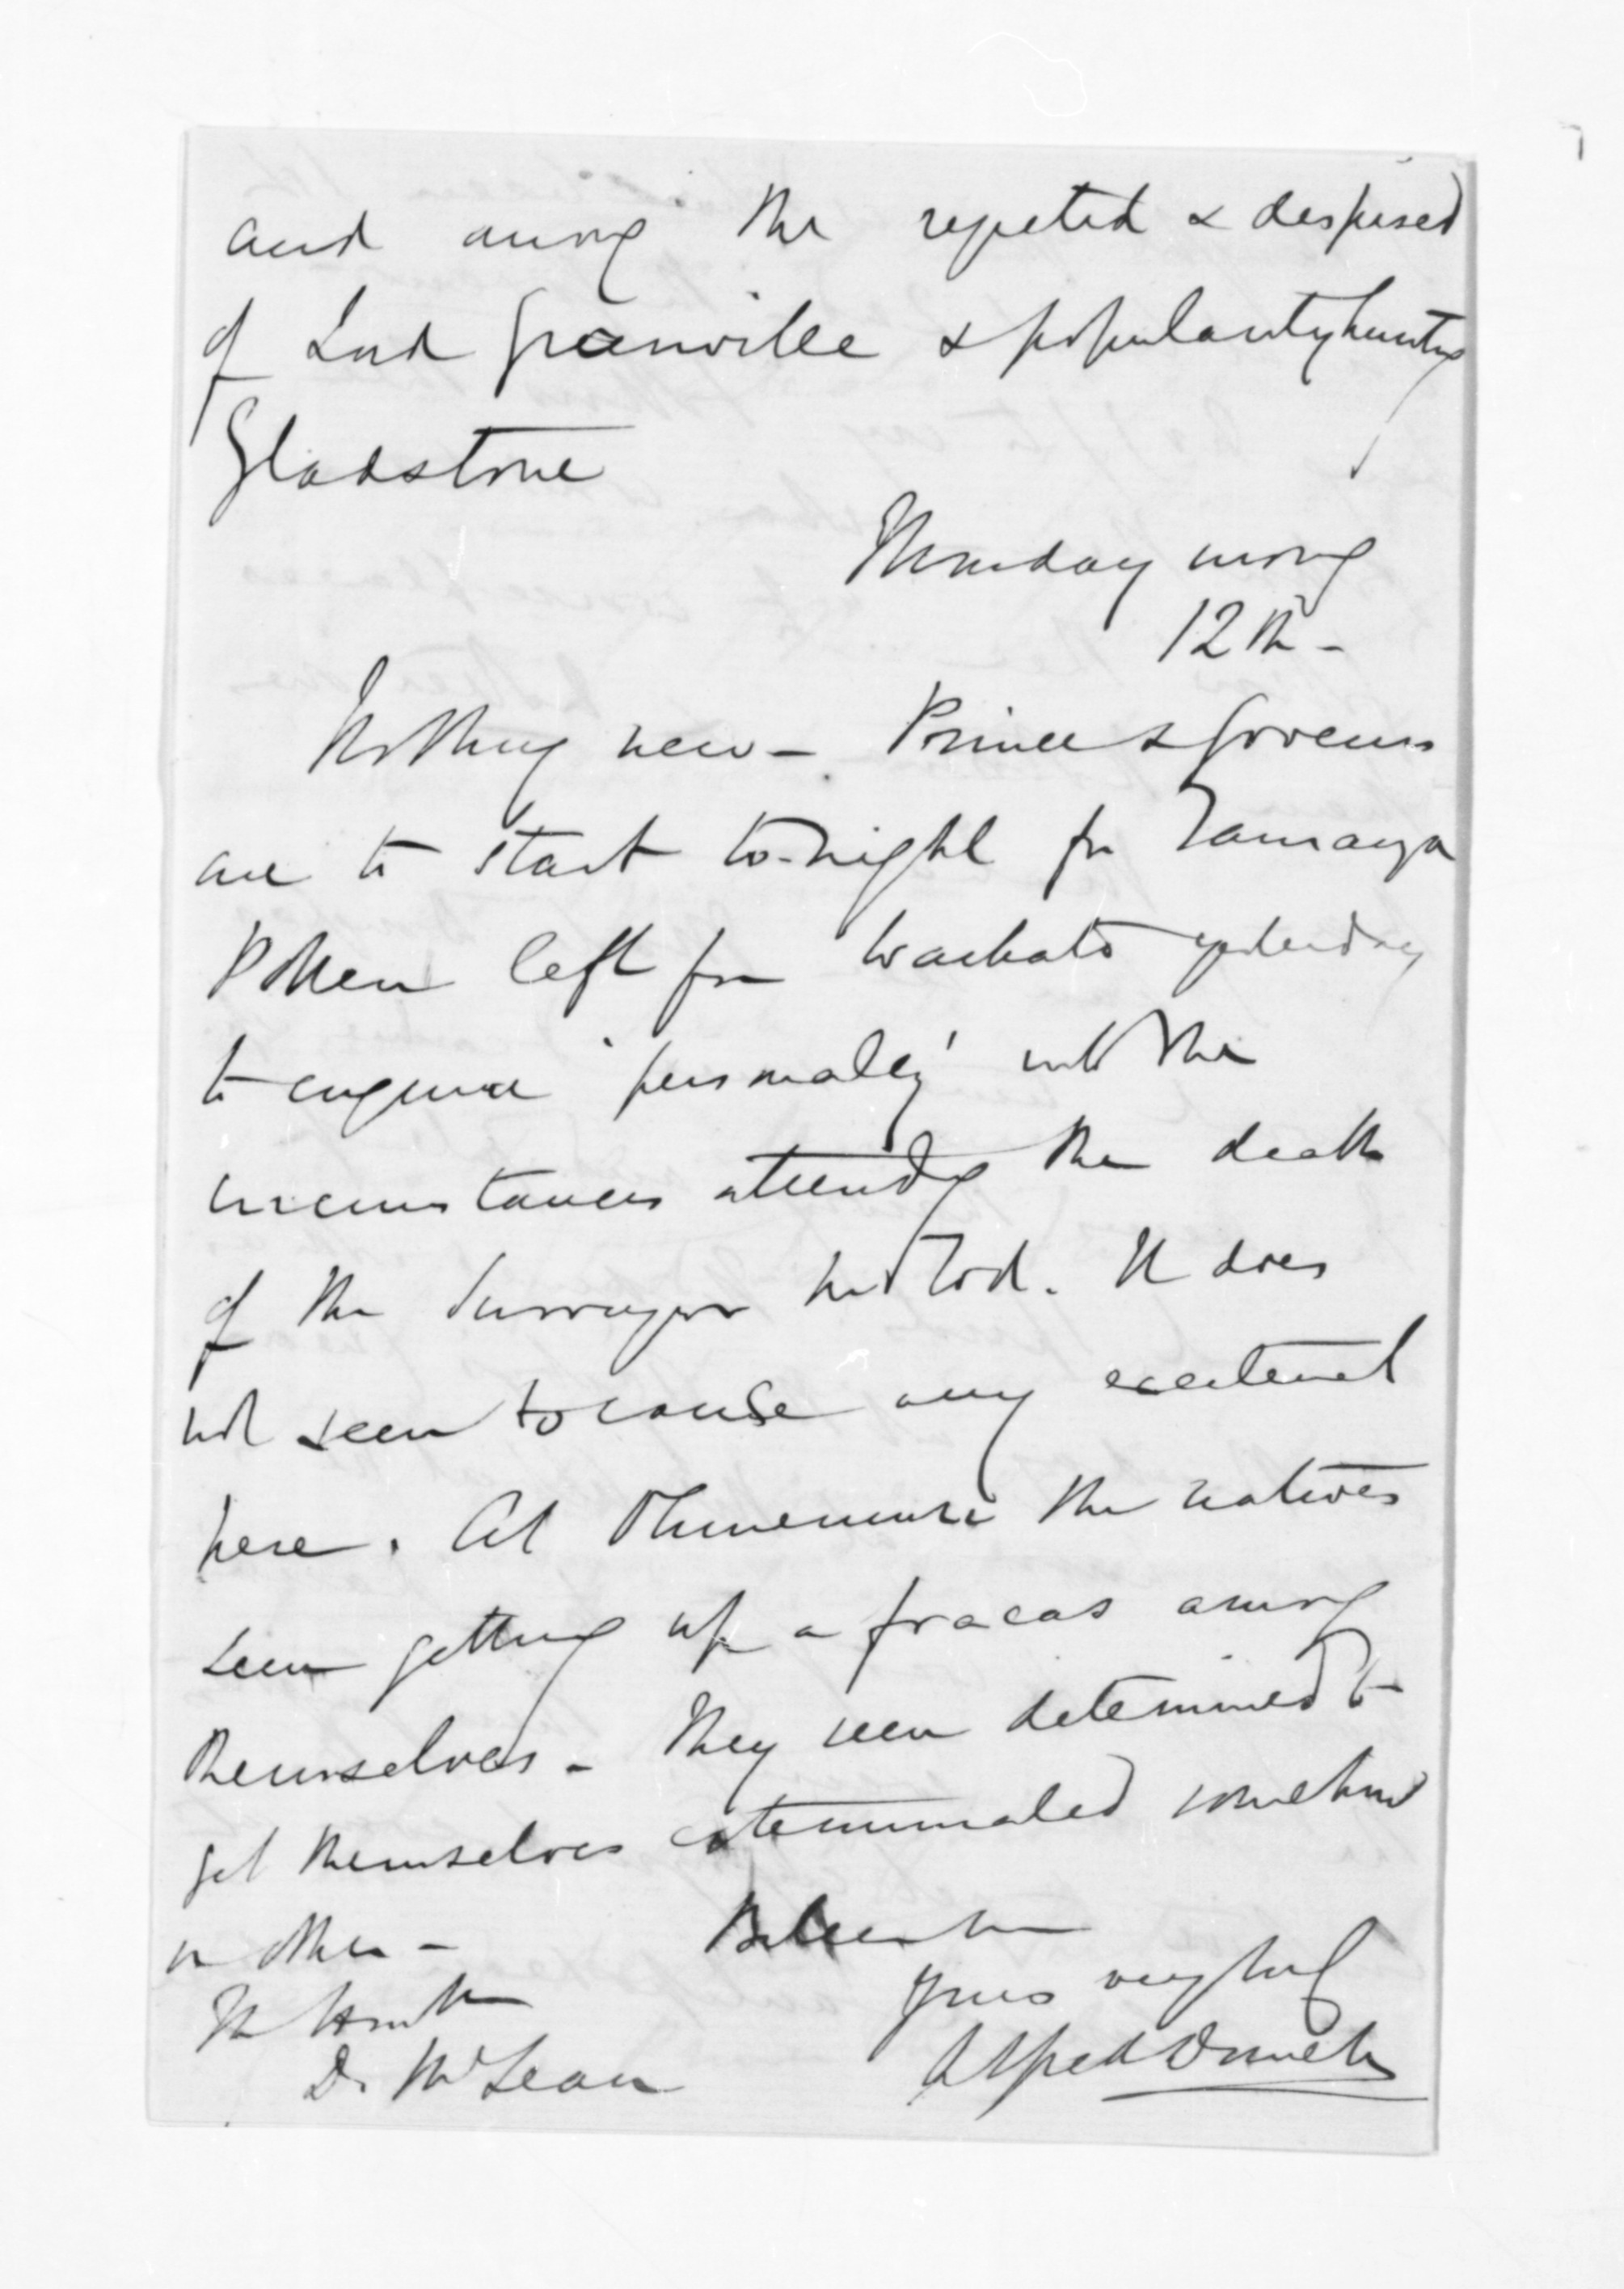 and among the rejected & despised
of Lord Granville & popularity hunting
Gladstone
Monday morng
12th -
Nothing new - Prince & Governor
are to start to-night for Tauranga
Pollen left for Waikato yesterday
to enquire 'personally' into the
circumstances attendg the death
of the Surveyor Mr Tod. It does
not seem to cause any excitement
here. At Ohinemuri the natives
seem getting up a fracas among
themselves - They seem determined to
get themselves exterminated somehow
or other -
Believe me
Yours very truly
Alfred Domett
The Honble
D. McLean